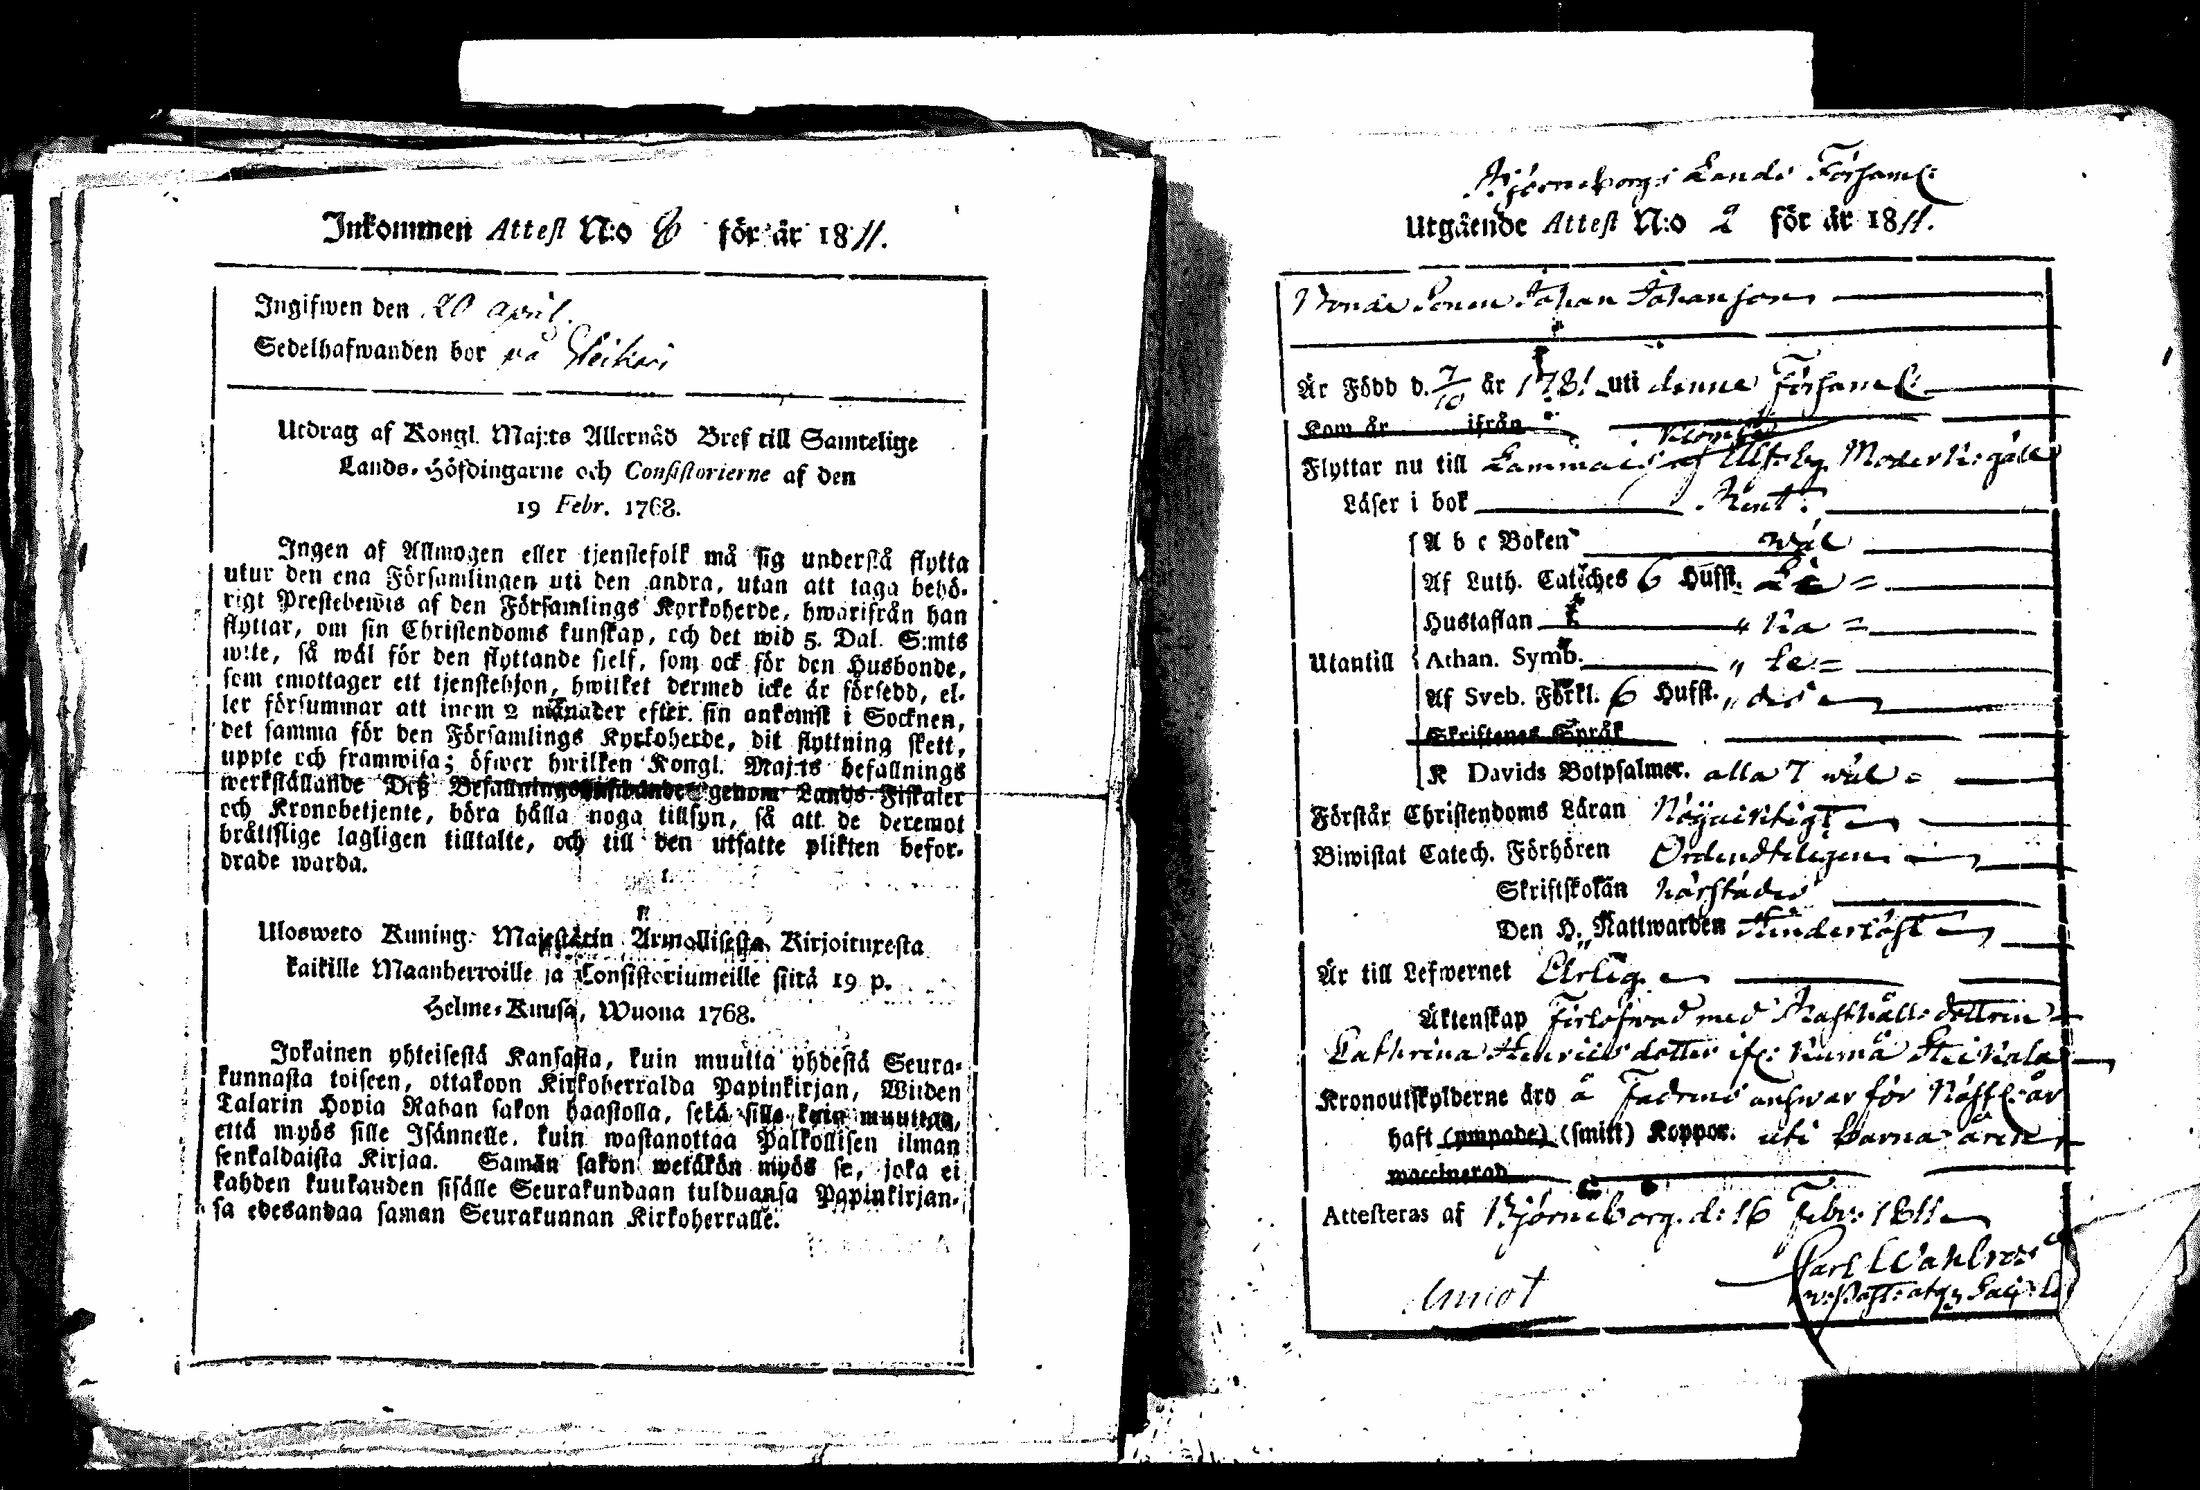 Inkommen Attest N:o 8 för år 1811.
Ingifwen den 20 april.
Sedelhafwanden bor på
Utdrag af Kongl. Maj:ts Allernåd Bref till Samtelige
Lands-Höfdingarne och Consistorierne af den
19 Febr. 1768.
Ingen af Allmogen eller tjenstefolk må sig understå flytta
utur den ena Församlingen uti den andra, utan att taga behö-
rigt Prestebewis af den Församlings Kyrkoherde, hwarifrån han
flyttar, om sin Christendoms kunskap, och det wid 5. Dal. S:mts
wite, så wäl för den flyttande sjelf, som ock för den Husbonde,
som emottager ett tjenstehjon, hwilket dermed icke är försedd, el-
ler försummar att inom 2 månader efter sin ankomst i Socknen,
det samma för den Församlings Kyrkoherde, dit flyttning skett,
uppte och framwisa; öfwer hwilken Kongl. Maj:ts befallnings
werkställande Deß Befallningshafwande genom Lands-Fiskaler
och Kronobetjente, böra hålla noga tillsyn, så att de deremot
bråttslige lagligen tilltalte, och till den utsatte plikten befor-
drade warda.
Ulosweto Kuning: Majestätin Armollisesta Kirjoituxesta
kaikille Maanherroille ja Consistoriumeille siitä 19 p.
Helme-Kuusa, Wuona 1768.
Jokainen yhteisestä Kansasta, kuin muutta yhdestä Seura-
kunnasta toiseen, ottakoon Kirkoherralda Papinkirjan, Wiiden
Talarin Hopia Rahan sakon haastolla, sekä sille kuin muuttaa,
että myös sille Isännelle, kuin wastanottaa Palkollisen ilman
senkaldaista Kirjaa. Samän sakon wetäkön myös se, joka ei
kahden kuukauden sisälle Seurakundaan tulduansa Papinkirjan-
sa edesandaa saman Seurakunnan Kirkoherralle.
Björneborgs Lands Församl:
Utgående Attest N:o 2 för år 1811.
Bonde Sonen Johan Johansson
Är Född d. 7/10 år 1781 uti denna Församl:
Kom år ifrån
Flyttar nu till Lammais af Ulfsby Moderk: gäld
Läser i bok Rent.
A b c Boken wäl
Af Luth. Catéches 6 Hufst.
Hustaflan
Utantill Athan. Symb.
Af Sveb. Förkl. 6 Hufst.
Skriftenes Språk
K Davids Botpsalmer. alla 7 wäl
Förstår Christendoms Läran Nöjaktigt
Biwistat Catech. Förhören Ordenteligen
Skriftskolan härstädes
Den H. Nattwarden
Är till Lefwernet Ärlig
Äktenskap Förlofwad med Rusthålls dottren
Cathrina Henriks dotter
Kronoutskylderne äro å Fadrens answar för år
haft (ympade) (smitt) Koppor. uti barna åren
waccinerad
Attesteras af Björneborg d: 16 Febr: 1811
Carl Wahlroos